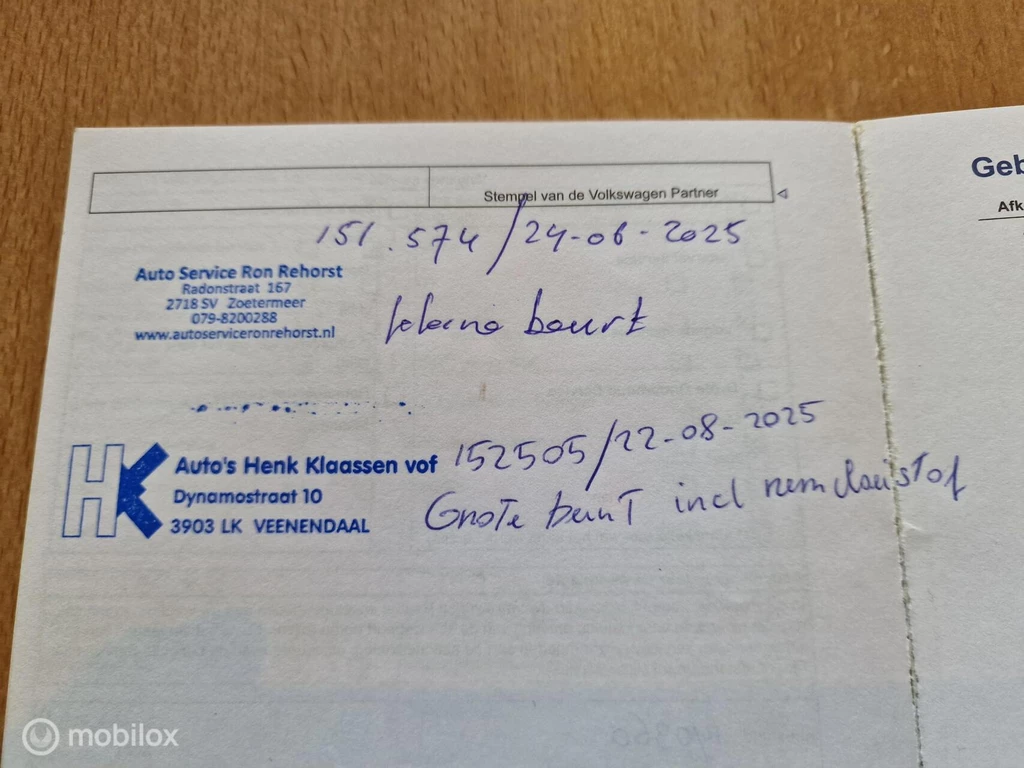 Stempel van de Volkswagen Partner
151.574 / 24-06-2025
Auto Service Ron Rehorst
Radonstraat 167
2718 SV Zoetermeer
079-8200288
www.autoserviceronrehorst.nl
kleine beurt
Auto's Henk Klaassen vof
Dynamostraat 10
3903 LK VEENENDAAL
HK
152505/22-08-2025
Grote beurt incl remvloeistof
Geb
Afk
mobilox